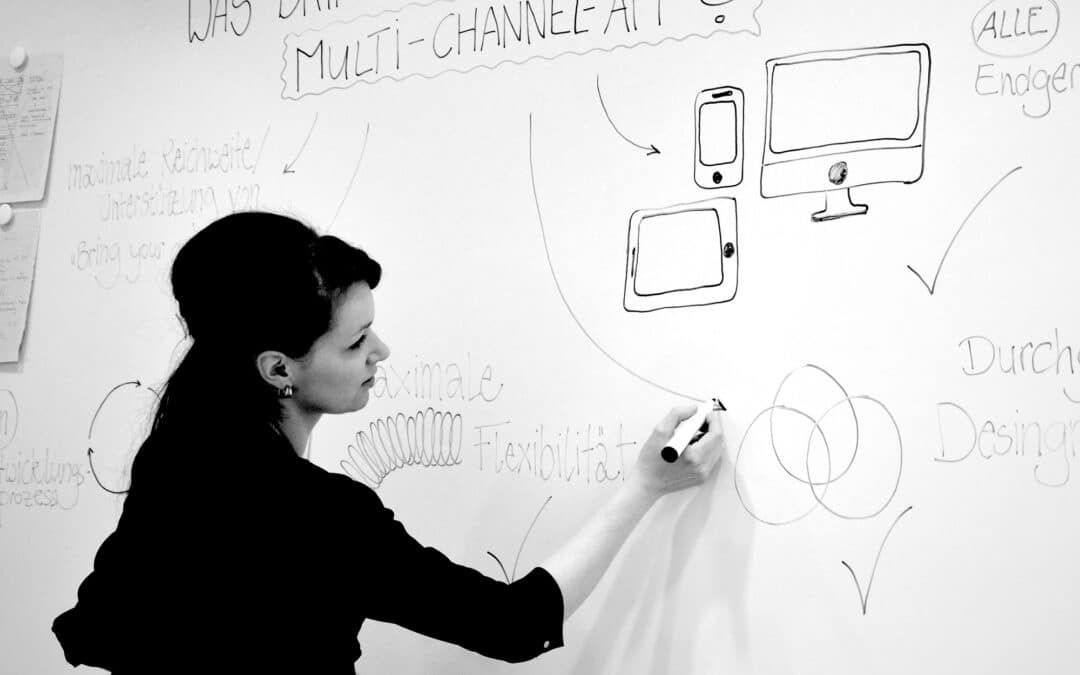 WAS
MULTI-CHANNEL-APP?
ALLE
Endger
maximale Reichweite/
Unterstützung von
"Bring your
maximale
Flexibilität
Durchg
Desingn
twicklungs-
prozess